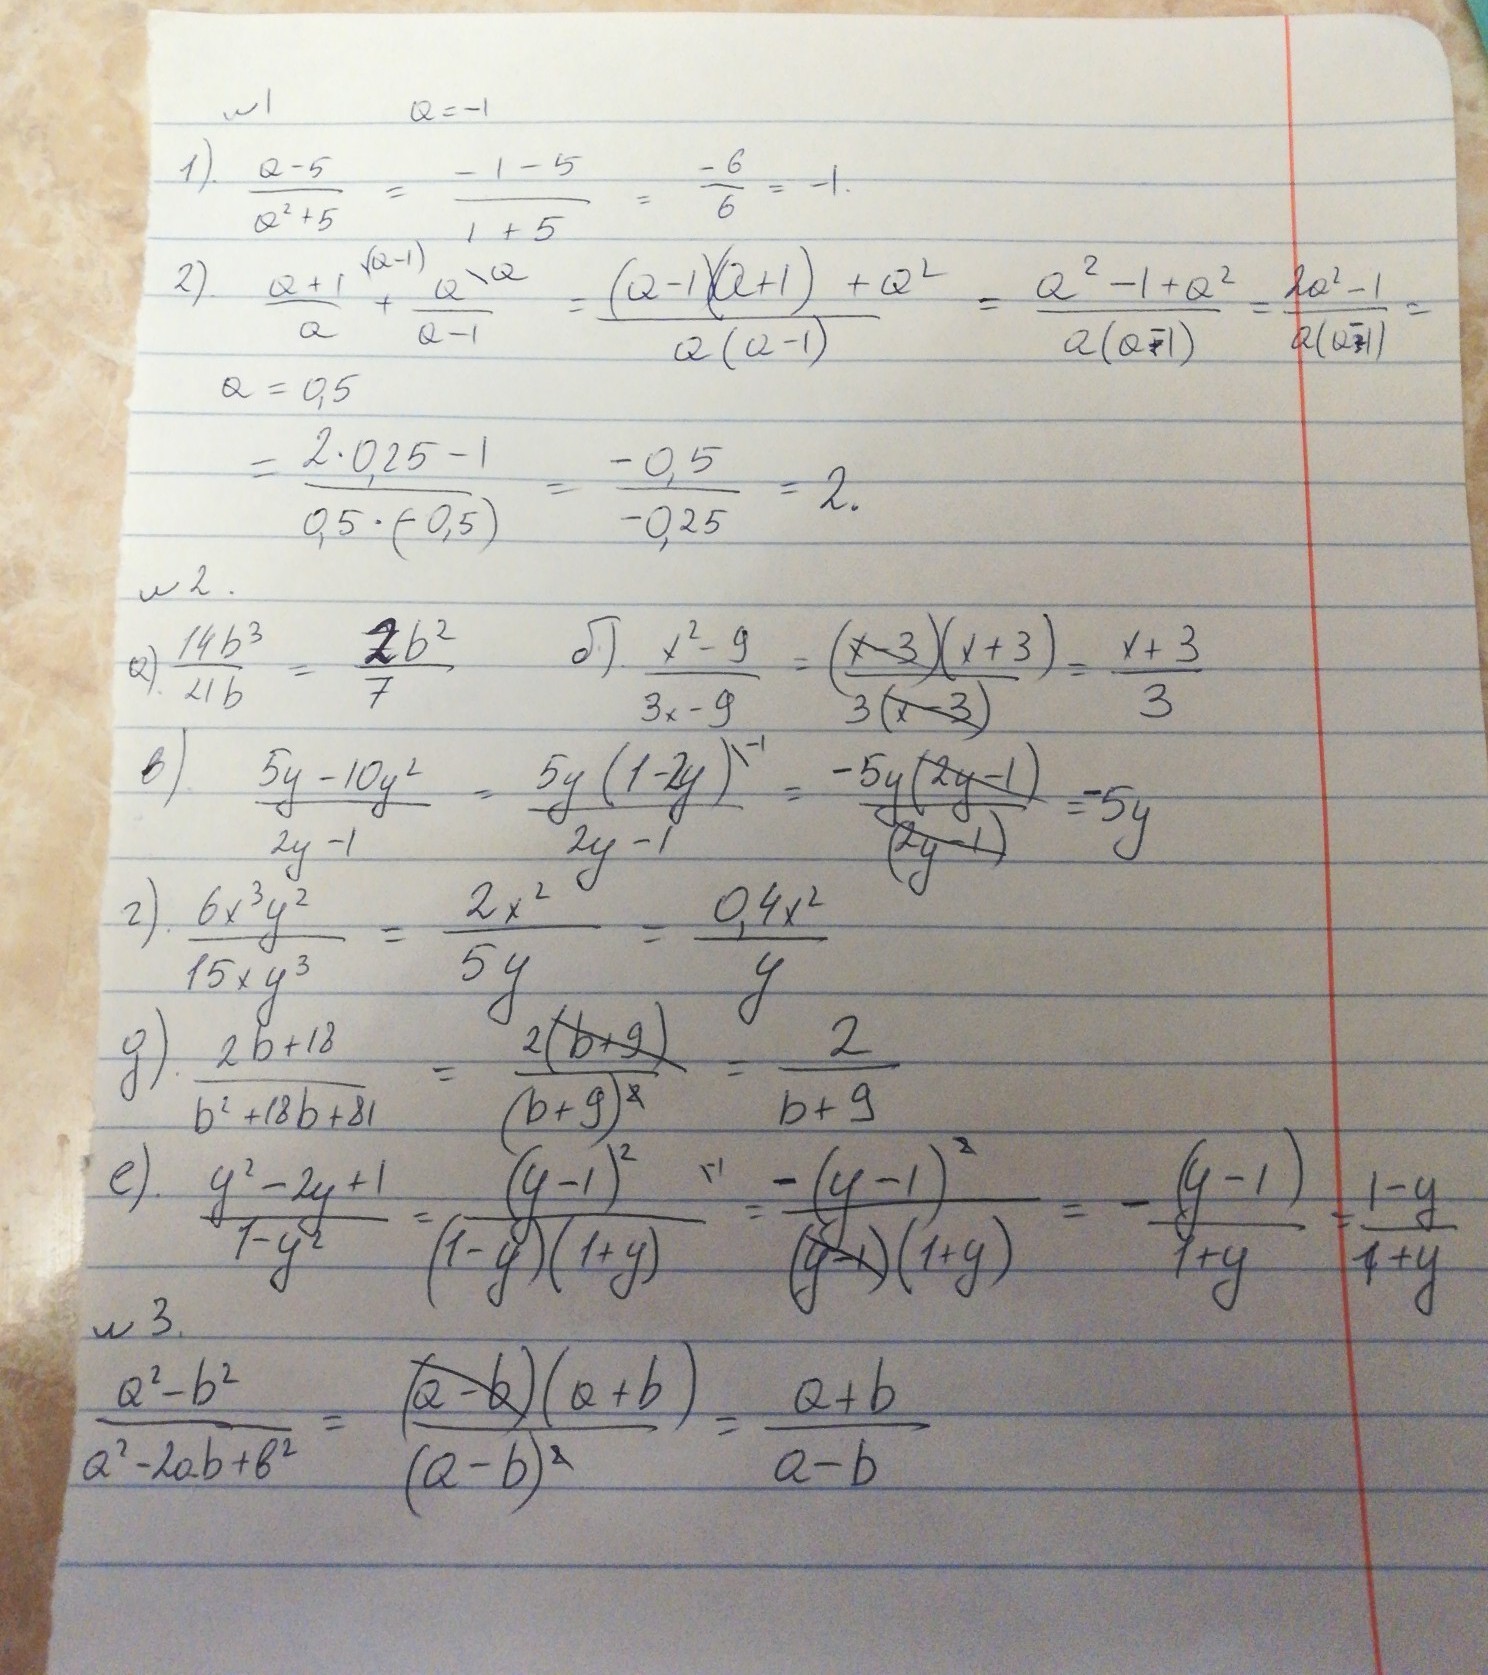 №1 a = -1
1). (a-5)/(a²+5) = (-1-5)/(1+5) = -6/6 = -1.
2). (a+1)/a \(a-1) + a/(a-1) \a = ((a-1)(a+1) + a²)/(a(a-1)) = (a²-1+a²)/(a(a-1)) = (2a²-1)/(a(a-1)) =
a = 0,5
= (2·0,25-1)/(0,5·(-0,5)) = -0,5/-0,25 = 2.
№2.
а). 14b³/21b = 2b²/7 б). (x²-9)/(3x-9) = ((x-3)(x+3))/(3(x-3)) = (x+3)/3
в) (5y-10y²)/(2y-1) = (5y(1-2y))/(2y-1) \-1 = (-5y(2y-1))/(2y-1) = -5y
г). 6x³y²/15xy³ = 2x²/5y = 0,4x²/y
д). (2b+18)/(b²+18b+81) = 2(b+9)/(b+9)² = 2/(b+9)
е). (y²-2y+1)/(1-y²) = (y-1)²/((1-y)(1+y)) \-1 = -(y-1)²/((y-1)(1+y)) = -(y-1)/(1+y) = (1-y)/(1+y)
№3.
(a²-b²)/(a²-2ab+b²) = ((a-b)(a+b))/(a-b)² = (a+b)/(a-b)